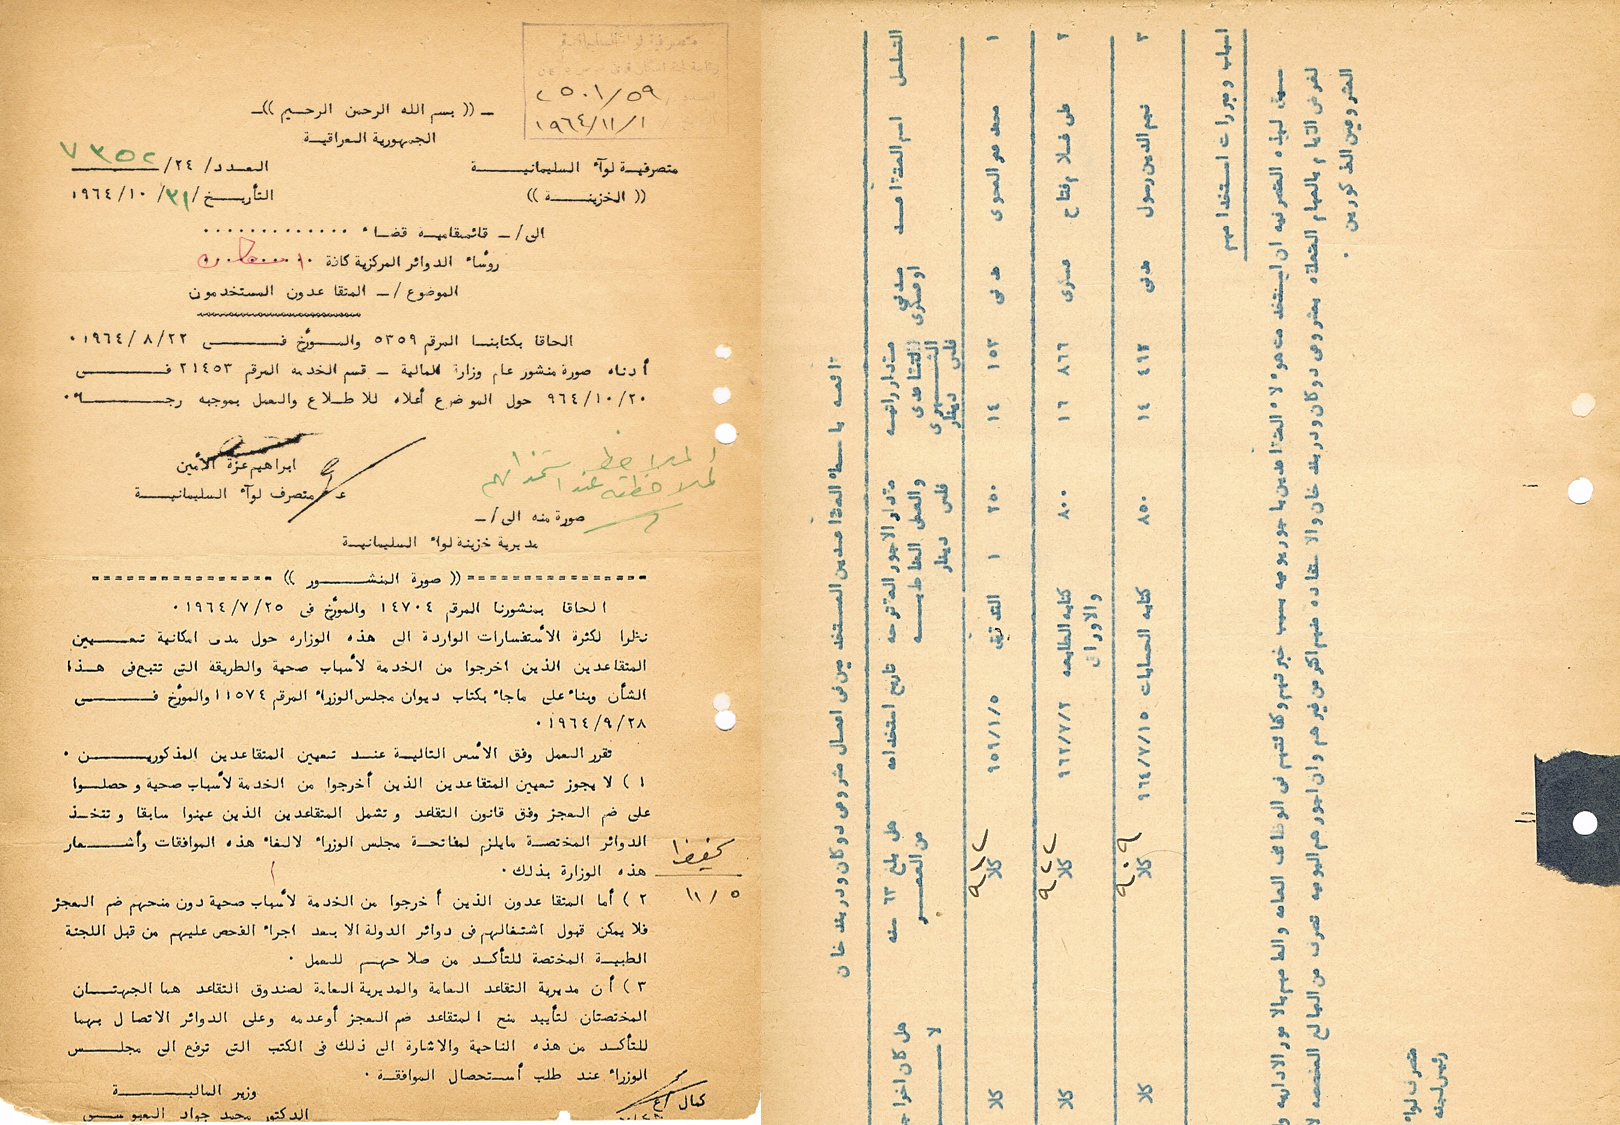 متصرفية لواء السليمانية
٢٥٠١/٥٩
١٩٦٤/١١/١
ــ (( بسم الله الرحمن الرحيم ))ــ
الجمهورية العراقية
متصرفية لوآء السليمانية
العدد/ ٢٤/ ٧٣٥٢
(( الخزينة ))
التأريخ/ ٣١/ ١٠/ ١٩٦٤
الى/ــ قائمقامية قضاء ٠٠٠٠٠٠٠٠٠٠٠٠٠
رؤساء الدوائر المركزية كافة
الموضوع/ــ المتقاعدون المستخدمون
الحاقا بكتابنا المرقم ٥٣٥٩ والمؤرخ فى ٢٢/ ٨/ ١٩٦٤٠
أدناه صورة منشور عام وزارة المالية ــ قسم الخدمه المرقم ٢١٤٥٣ فى
٢٠/ ١٠/ ٩٦٤ حول الموضوع أعلاه للاطلاع والعمل بموجبه رجاء٠
ابراهيم عزة الأمين
ع/ متصرف لوآء السليمانية
لملاحظته عند استخدامهم
صورة منه الى/ــ
مديرية خزينة لواء السليمانية
(( صورة المنشور ))
الحاقا بمنشورنا المرقم ١٤٧٠٤ والمؤرخ فى ٢٥/ ٧/ ١٩٦٤٠
نظرا لكثرة الأستفسارات الواردة الى هذه الوزاره حول مدى امكانية تعيين
المتقاعدين الذين اخرجوا من الخدمة لأسباب صحية والطريقة التى تتبع فى هذا
الشأن وبناء على ماجاء بكتاب ديوان مجلس الوزراء المرقم ١١٥٧٤ والمؤرخ فى
٢٨/ ٩/ ١٩٦٤٠
تقرر العمل وفق الأسس التالية عند تعيين المتقاعدين المذكورين ٠
١ ) لا يجوز تعيين المتقاعدين الذين أخرجوا من الخدمة لأسباب صحية و حصلوا
على ضم العجز وفق قانون التقاعد و تشمل المتقاعدين الذين عينوا سابقا و تتخذ
الدوائر المختصة مايلزم لمفاتحة مجلس الوزراء لالغاء هذه الموافقات وأشعار
هذه الوزارة بذلك٠
يحفظ
٥/ ١١
٢ ) أما المتقاعدون الذين أخرجوا من الخدمة لأسباب صحية دون منحهم ضم العجز
فلا يمكن قبول اشتغالهم فى دوائر الدولة الا بعد اجراء الفحص عليهم من قبل اللجنة
الطبية المختصة للتأكد من صلاحهم للعمل ٠
٣ ) أن مديرية التقاعد العامة والمديرية العامة لصندوق التقاعد هما الجهتان
المختصتان لتأييد منح المتقاعد ضم العجز أوعدمه وعلى الدوائر الاتصال بهما
للتأكد من هذه الناحية والاشارة الى ذلك فى الكتب التى ترفع الى مجلس
الوزراء عند طلب أستحصال الموافقة ٠
وزير المالية
الدكتور محمد جواد العبوسي
كمال
قائمه باسماء المتقاعدين المستخدمين فى اعمال مشروعى دوكان ودربندخان
التسلسل اسم المتقاعد مدني اوعسكرى مقدار راتبه التقاعدى الشهرى فلس دينار مقدار الاجور المقترحه والعمل المناط به فلس دينار تاريخ استخدامه هل بلغ ٦٣ سنه من العمر هل كان اخراجه
لا
١ محمد عمر النحوى مدنى ١٥٣ ١٤ ٢٥٠ ١ التدقيق ٩٥٩/١/٥ كلا كلا
٩١٢
٢ على غلام فتاح عسكرى ٨٦٦ ١٦ ٨٠٠ كتابه الطابعه والاوراق ٩٦٢/٧/٢ كلا كلا
٩٢٢
٣ نجم الدين رسول مدنى ٤٦٢ ١٤ ٨٥٠ كتابه الحسابات ٩٦٤/٧/١٥ كلا كلا
٩٠٩
اسباب ومبررات استخدامهم
سبق لهذه المتصرفيه ان استخدمت هوءلاء المتقاعدين باجور يوميه بسبب خبرتهم وكفائتهم فى الوظائف العامه والمامهم بالامور الاداريه
لغرض القيام بالمهام المتعلقه بمشروعى دوكان ودربندخان والاستفاده منهم اكثر من غيرهم وان اجورهم اليوميه تصرف من المبالغ المخصصه
المشروعين المذكورين ٠
متصرف لواء
رئيس لجنه